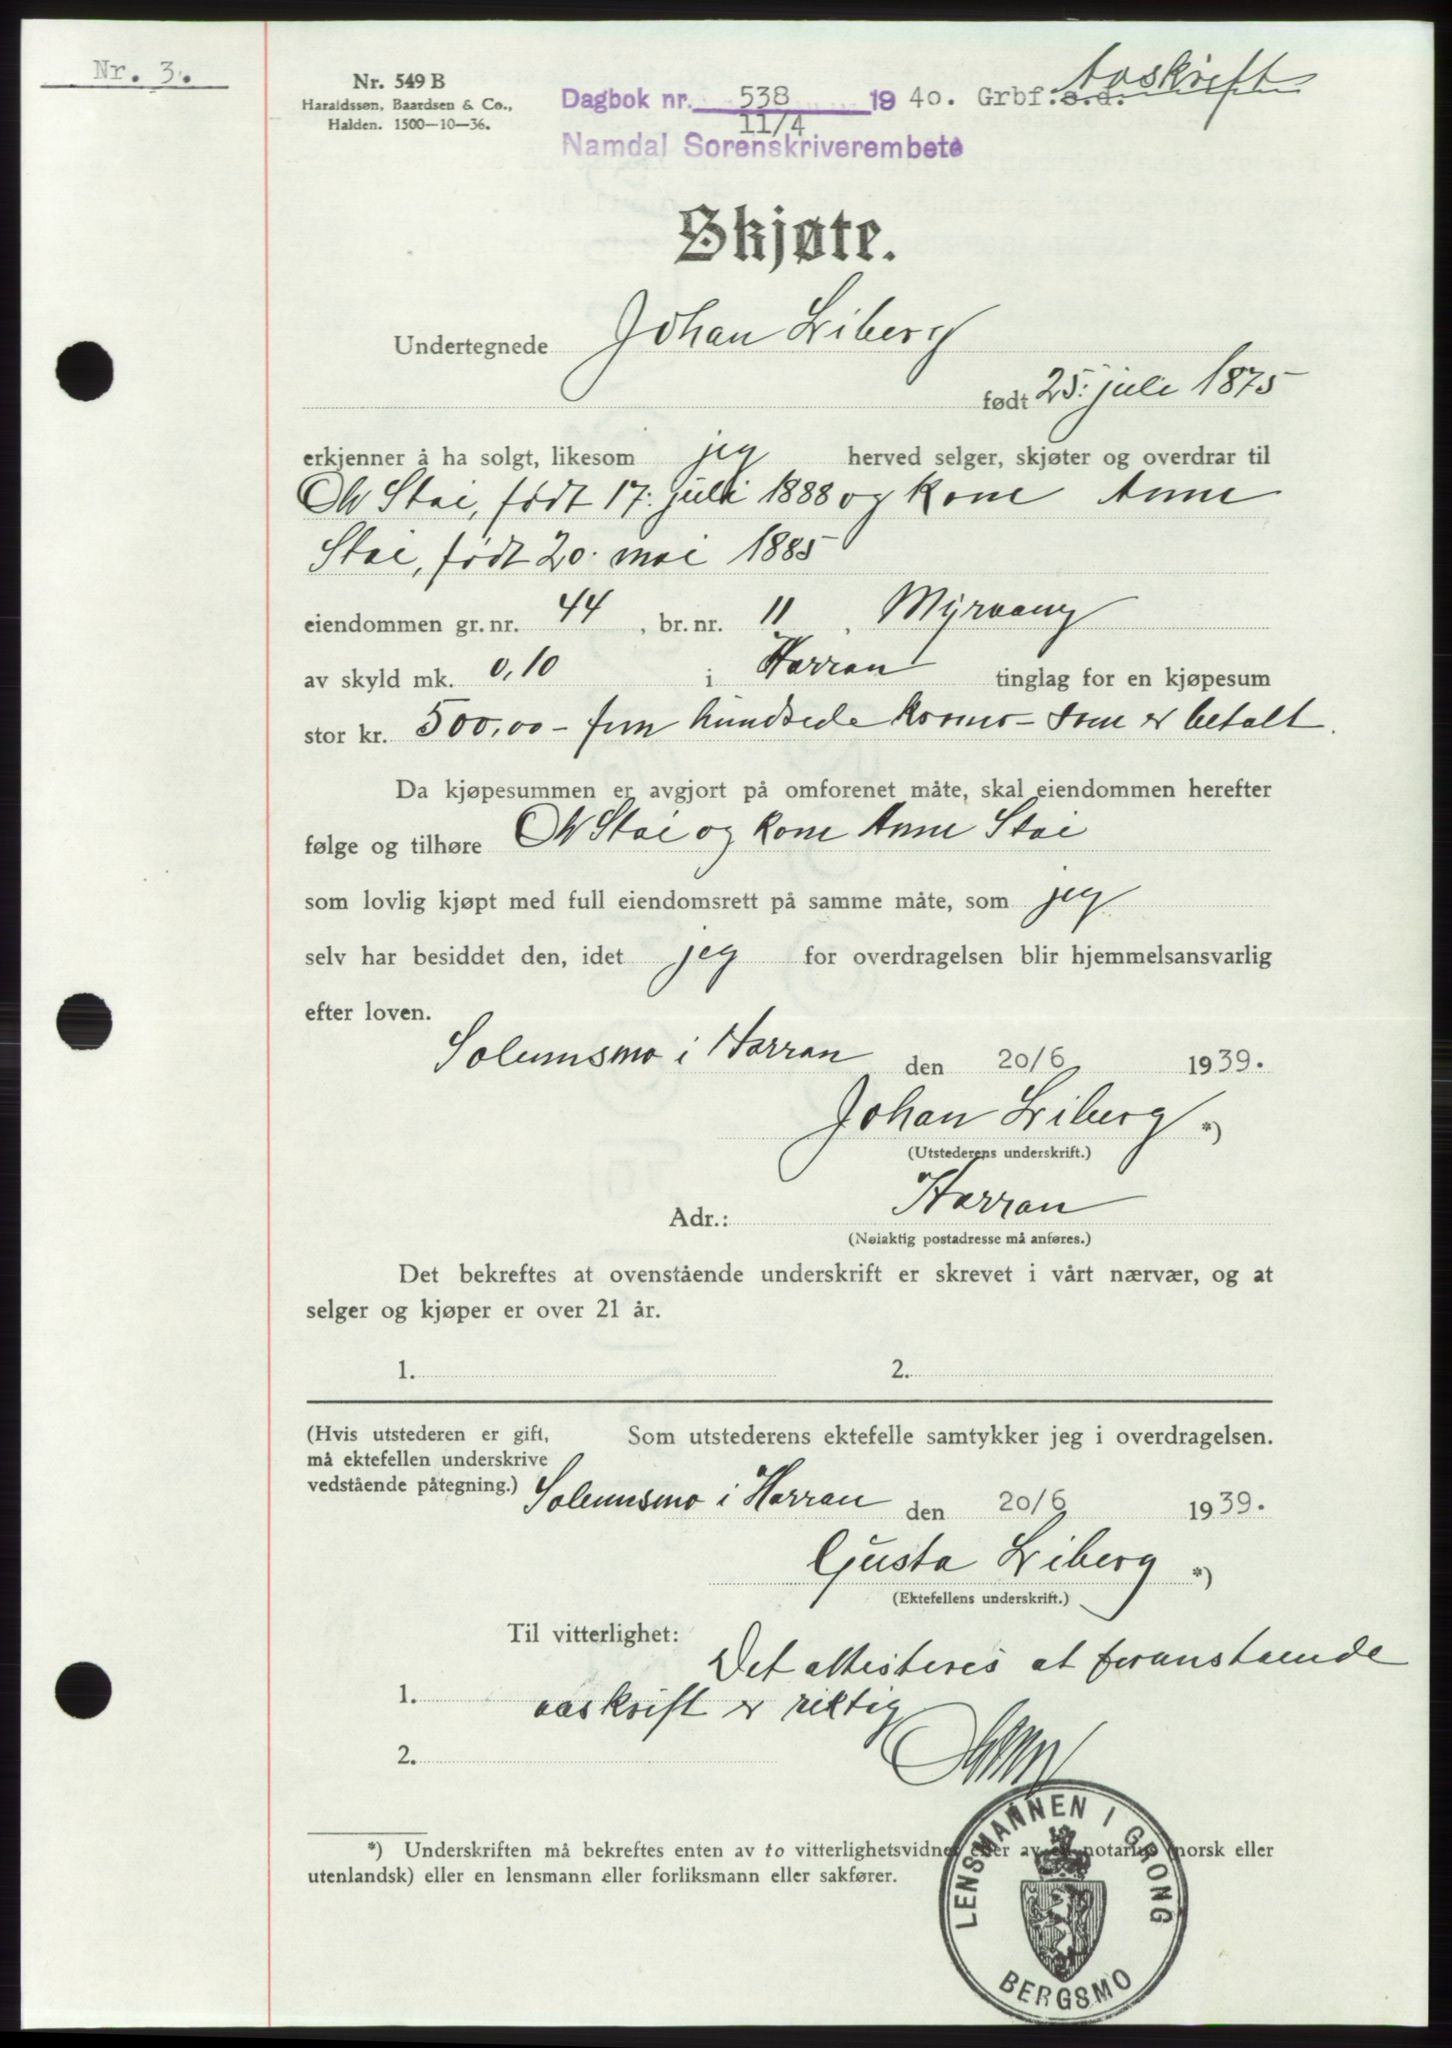 Nr. 3.
Nr. 549 B
Haraldssøn, Baardsen & Co.,
Halden. 1500—10—36.
Avskrift
Dagbok nr. 538 1940. Grbf. s.d.
11/4
Namdal Sorenskriverembete
Skjøte.
Undertegnede Johan Liberg
født 25. juli 1875
erkjenner å ha solgt, likesom jeg herved selger, skjøter og overdrar til
Stai, født 17. juli 1888 og kone Anne
Stai, født 20. mai 1885
eiendommen gr. nr. 44, br. nr. 11, Myrvang
av skyld mk. 0,10 i Harran tinglag for en kjøpesum
stor kr. 500,00 – fem hundrede kroner – som er betalt.
Da kjøpesummen er avgjort på omforenet måte, skal eiendommen herefter
følge og tilhøre Stai og kone Anne Stai
som lovlig kjøpt med full eiendomsrett på samme måte, som jeg
selv har besiddet den, idet jeg for overdragelsen blir hjemmelsansvarlig
efter loven.
Solumsmo i Harran den 20/6 1939.
Johan Liberg *)
(Utstederens underskrift.)
Adr.: Harran
(Nøiaktig postadresse må anføres.)
Det bekreftes at ovenstående underskrift er skrevet i vårt nærvær, og at
selger og kjøper er over 21 år.
1. 2.
(Hvis utstederen er gift,
må ektefellen underskrive
vedstående påtegning.)
Som utstederens ektefelle samtykker jeg i overdragelsen.
Solumsmo i Harran den 20/6 1939.
Gusta Liberg *)
(Ektefellens underskrift.)
Til vitterlighet:
Det attesteres at foranstaaende
1. avskrift er riktig
2.
*) Underskriften må bekreftes enten av to vitterlighetsvidner eller av en notarius (norsk eller
utenlandsk) eller en lensmann eller forliksmann eller sakfører.
LENSMANNEN I GRONG
BERGSMO